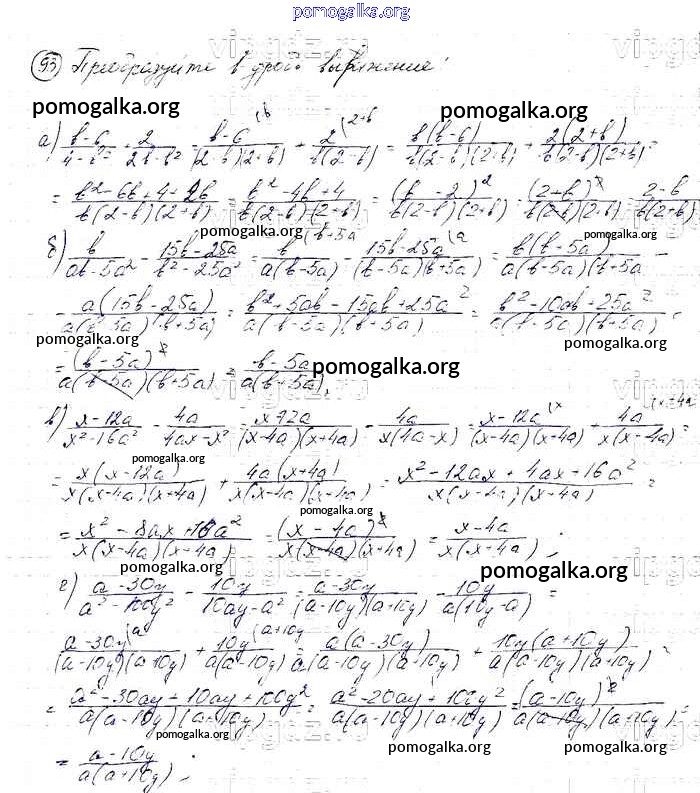 pomogalka.org
93) Преобразуйте в дробь выражение:
pomogalka.org
pomogalka.org
а) (b-6)/(4-b²) + 2/(2b-b²) = (b-6)/((2-b)(2+b)) + 2/(b(2-b)) = b(b-6)/(b(2-b)(2+b)) + 2(2+b)/(b(2-b)(2+b)) =
= (b²-6b+4+2b)/(b(2-b)(2+b)) = (b²-4b+4)/(b(2-b)(2+b)) = (b-2)²/(b(2-b)(2+b)) = (2-b)/(b(2+b))
pomogalka.org
pomogalka.org
б) b/(ab-5a²) - (15b-25a)/(b²-25a²) = b/(a(b-5a)) - (15b-25a)/((b-5a)(b+5a)) = b(b-5a)/(a(b-5a)(b+5a) -
- a(15b-25a)/(a(b-5a)(b+5a)) = (b²+5ab-15ab+25a²)/(a(b-5a)(b+5a)) = (b²-10ab+25a²)/(a(b-5a)(b+5a)) =
pomogalka.org
pomogalka.org
= (b-5a)²/(a(b-5a)(b+5a)) = (b-5a)/(a(b+5a)),
pomogalka.org
в) (x-12a)/(x²-16a²) - 4a/(4ax-x²) = (x-12a)/((x-4a)(x+4a)) - 4a/(x(4a-x)) = (x-12a)/((x-4a)(x+4a)) + 4a/(x(x-4a)) =
pomogalka.org
= x(x-12a)/(x(x-4a)(x+4a)) + 4a(x+4a)/(x(x-4a)(x+4a)) = (x²-12ax+4ax+16a²)/(x(x-4a)(x+4a)) =
pomogalka.org
= (x²-8ax+16a²)/(x(x-4a)(x+4a)) = (x-4a)²/(x(x-4a)(x+4a)) = (x-4a)/(x(x+4a));
pomogalka.org
pomogalka.org
г) (a-30y)/(a²-100y²) - 10y/(10ay-a²) = (a-30y)/((a-10y)(a+10y)) - 10y/(a(10y-a)) =
(a-30y)/((a-10y)(a+10y)) + 10y/(a(a-10y)) = a(a-30y)/(a(a-10y)(a+10y)) + 10y(a+10y)/(a(a-10y)(a+10y)) =
= (a²-30ay+10ay+100y²)/(a(a-10y)(a+10y)) = (a²-20ay+100y²)/(a(a-10y)(a+10y)) = (a-10y)²/(a(a-10y)(a+10y)) =
pomogalka.org
pomogalka.org
pomogalka.org
= (a-10y)/(a(a+10y));